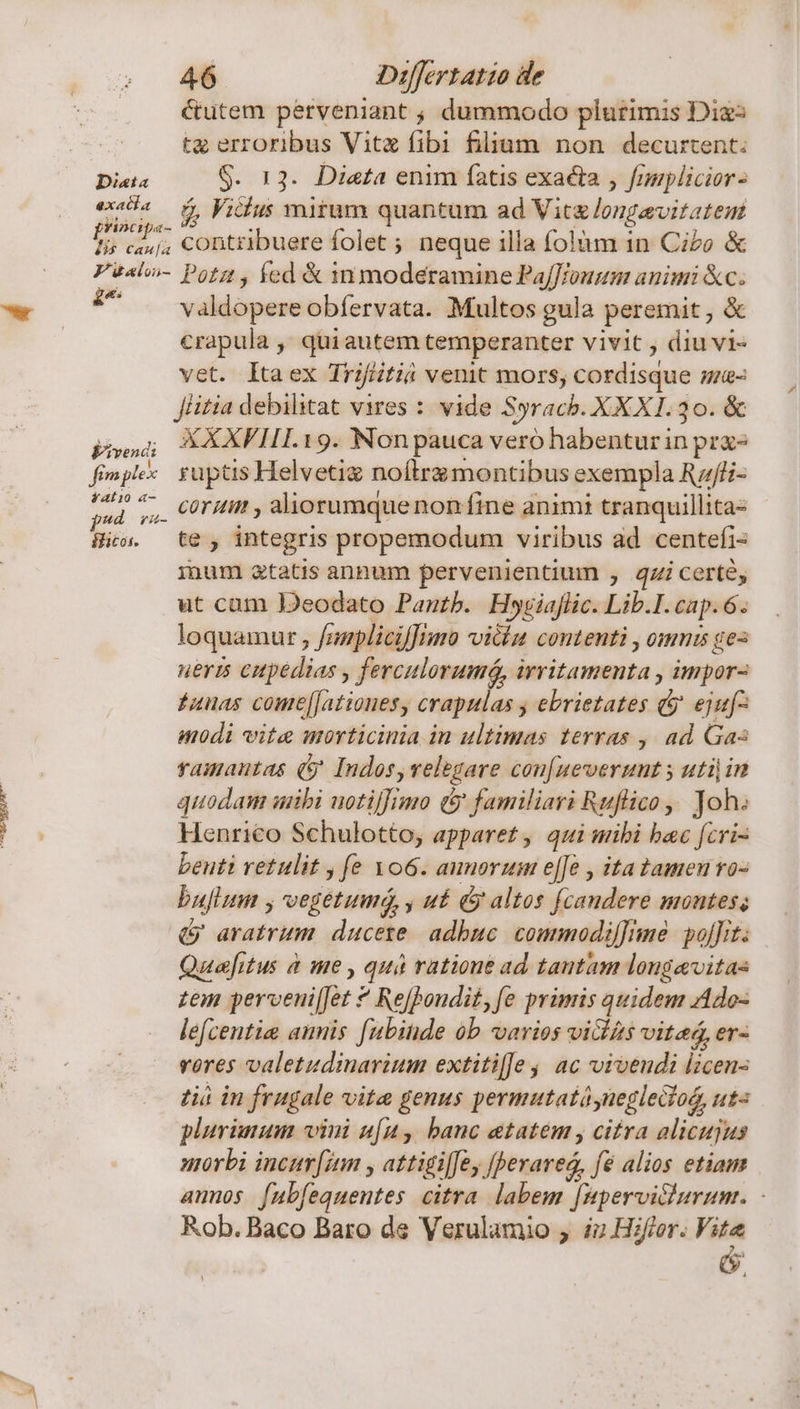 46 Dissertatio de
ctutem perveniant ; dummodo plurimis Diæ-
tæ erroribus Vitæ sibi filium non decurtent.
Diæta
exacta
principa-
lis causa
Vitæ lon-
gæ.
§. 13. Diæta enim satis exacta , simplicior-
q́; Victus mirum quantum ad Vitæ longævitatem
contribuere solet ; neque illa solùm in Cibo &
Potu , sed & in moderamine Passionum animi &c.
valdopere observata. Multos gula peremit , &
crapula , qui autem temperanter vivit , diu vi-
vet. Ita ex Tristitiâ venit mors, cordisque mæ-
stitia debilitat vires : vide Syrach. XXXI. 30. &
XXXVIII. 19. Non pauca verò habentur in præ-
Vivendi
simplex
ratio a-
pud ru-
sticos.
ruptis Helvetiæ nostræ montibus exempla Rusti-
corum , aliorumque non sine animi tranquillita-
te , integris propemodum viribus ad centesi-
mum ætatis annum pervenientium , qui certè,
ut cum Deodato Panth. Hygiastic. Lib. I. cap. 6.
loquamur , simplicissimo victu contenti , omnis ge-
neris cupedias , ferculorumq́; irritamenta , impor-
tunas comessationes, crapulas , ebrietates & ejus-
modi vitæ morticinia in ultimas terras , ad Ga-
ramantas & Indos, relegare consueverunt ; uti in
quodam mihi notissimo & familiari Rustico , Joh.
Henrico Schulotto, apparet , qui mihi hæc scri-
benti retulit , se 106. annorum esse , ita tamen ro-
bustum , vegetumq́; , ut & altos scandere montes,
& aratrum ducere adhuc commodissimè possit.
Quæsitus à me , quâ ratione ad tantam longævita-
tem pervenisset ? Respondit, se primis quidem Ado-
lescentiæ annis subinde ob varios victûs vitæq́; er-
rores valetudinarium extitisse , ac vivendi licen-
tiâ in frugale vitæ genus permutatâ, neglectoq́; ut-
plurimum vini usu , hanc ætatem , citra alicujus
morbi incursum , attigisse, sperareq́; se alios etiam
annos subsequentes citra labem supervicturum.
Rob. Baco Baro de Verulamio , in Histor. Vitæ
&